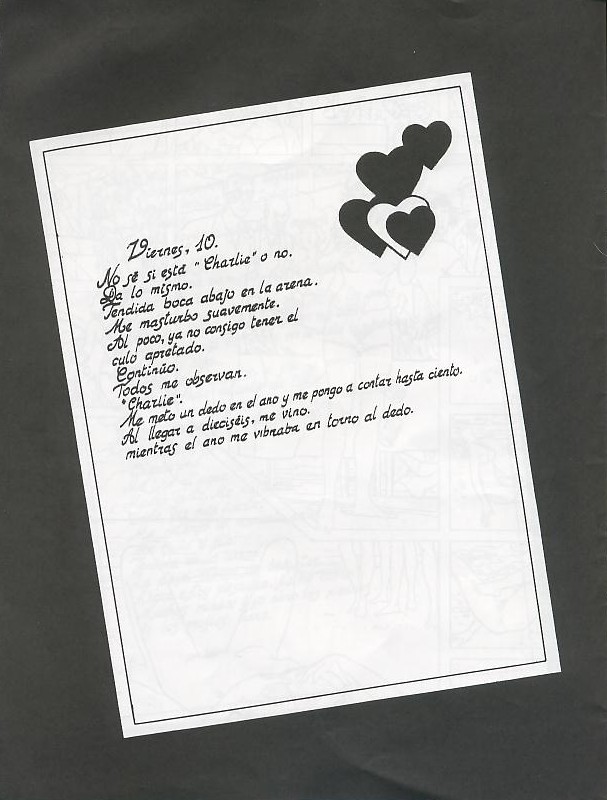 Viernes, 10.
No sé si está "Charlie" o no.
Da lo mismo.
Tendida boca abajo en la arena.
Me masturbo suavemente.
Al poco, ya no consigo tener el
culo apretado.
Continúo.
Todos me observan.
"Charlie".
Me meto un dedo en el ano y me pongo a contar hasta ciento.
Al llegar a dieciséis, me vino.
mientras el ano me vibraba en torno al dedo.